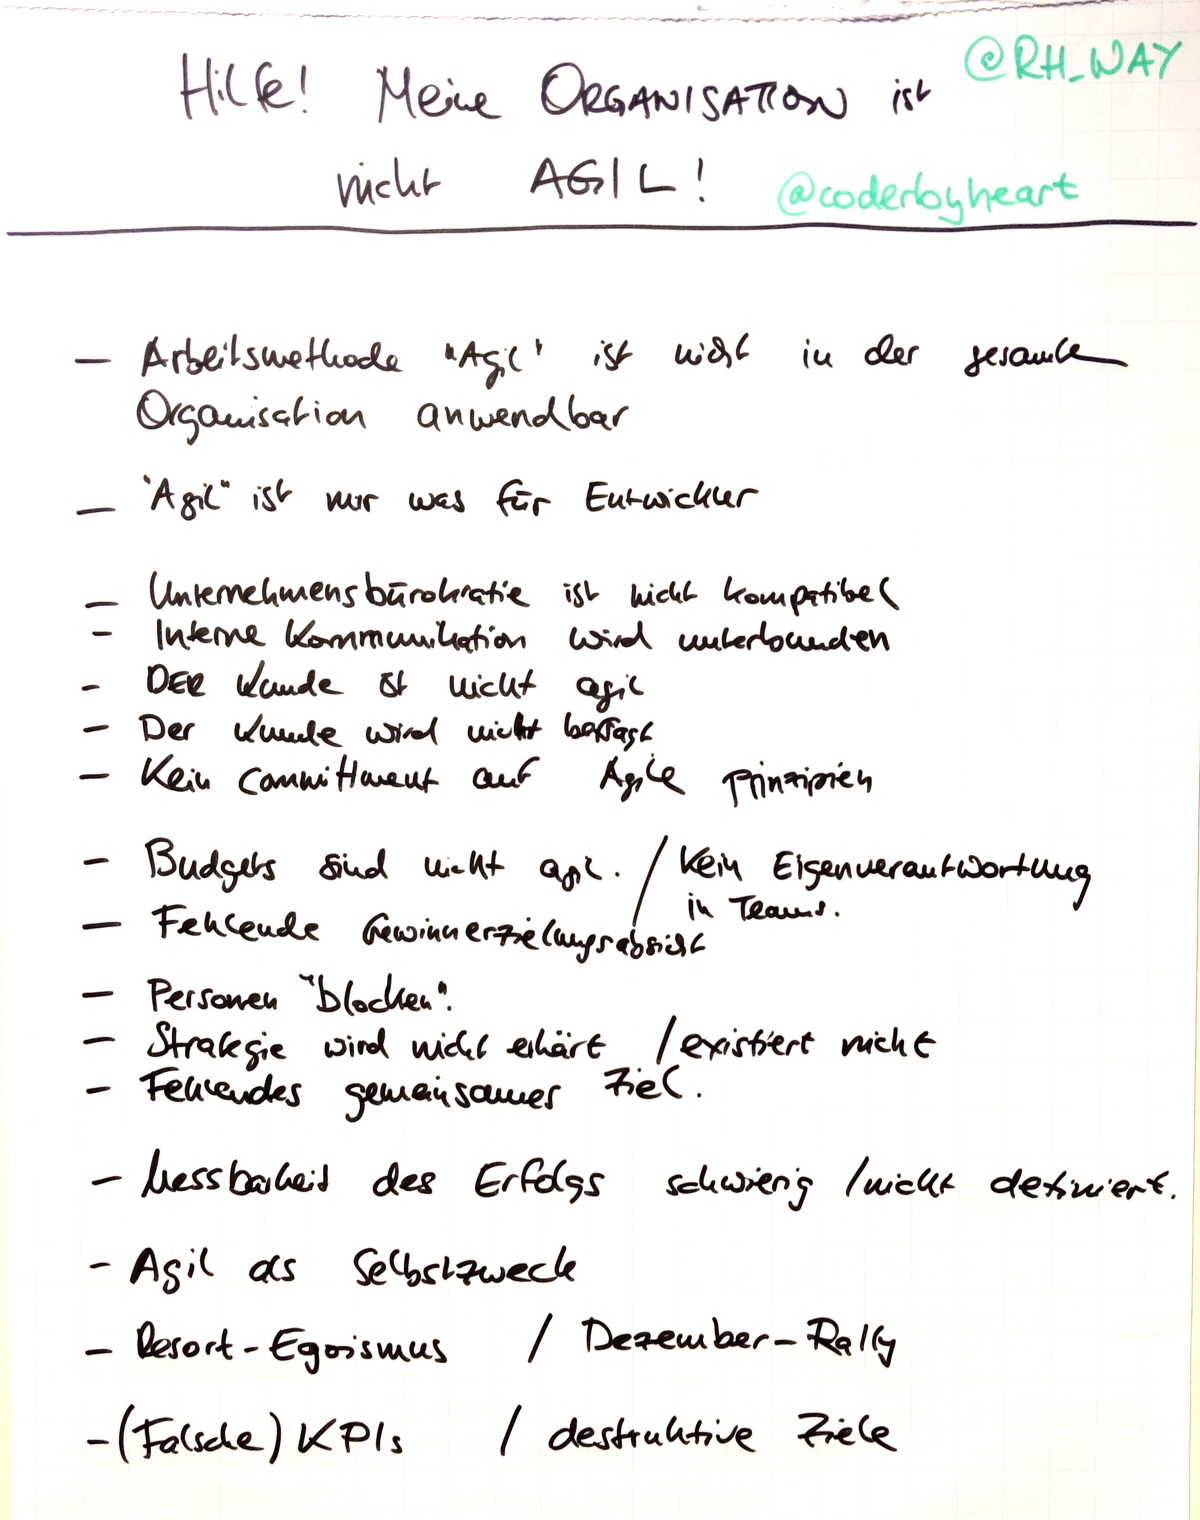 Hilfe! Meine ORGANISATION ist @RH_WAY
nicht AGIL! @coderbyheart
– Arbeitsmethode "Agil" ist nicht in der gesamte
Organisation anwendbar
– "Agil" ist nur was für Entwickler
– Unternehmensbürokratie ist nicht kompatibel
– Interne Kommunikation wird unterbunden
– DER Kunde ist nicht agil
– Der Kunde wird nicht befragt
– Kein Committment auf Agile Prinzipien
– Budgets sind nicht agil. / Kein Eigenverantwortung
in Teams.
– Fehlende Gewinnerzielungsabsicht
– Personen "blocken".
– Strategie wird nicht erklärt / existiert nicht
– Fehlendes gemeinsames Ziel.
– Messbarkeit des Erfolgs schwierig / nicht definiert.
– Agil als Selbstzweck
– Resort-Egoismus / Dezember-Rally
– (Falsche) KPIs / destruktive Ziele